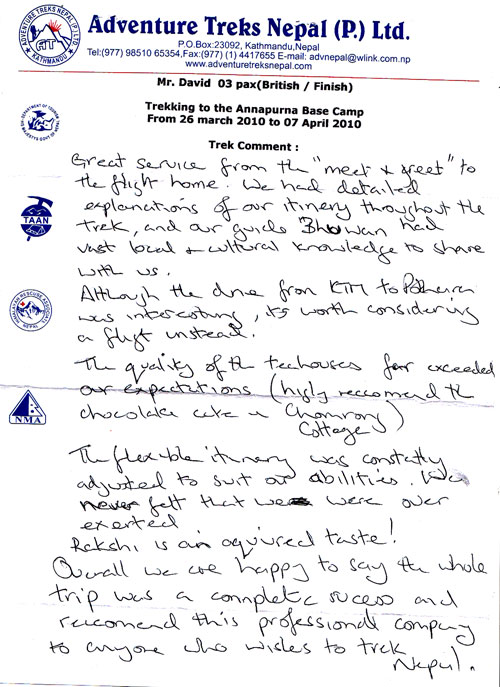 Adventure Treks Nepal (P.) Ltd.
P.O.Box:23092, Kathmandu,Nepal
Tel:(977) 98510 65354,Fax:(977) (1) 4417655 E-mail: advnepal@wlink.com.np
www.adventuretreksnepal.com
ADVENTURE TREKS NEPAL (P.) LTD.
AT
KATHMANDU
Mr. David 03 pax(British / Finish)
Trekking to the Annapurna Base Camp
From 26 march 2010 to 07 April 2010
Trek Comment :
TAAN
NMA
Great service from the "meet & greet" to
the flight home. We had detailed
explanations of our itinery throughout the
trek, and our guide Bhuwan had
vast local & cultural knowledge to share
with us.
Although the drive from KTM to Pokhara
was interesting, its worth considering
a flight instead.
The quality of the teahouses far exceeded
our expectations (higly reccomend the
chocolate cake in Chomrong
Cottage)
The flexible itinery was constantly
adjusted to suit our abilities. We
never felt that we were over
exerted
Rakshi is an aquired taste!
Overall we are happy to say the whole
trip was a complete success and
reccomend this professional company
to anyone who wishes to trek
Nepal.